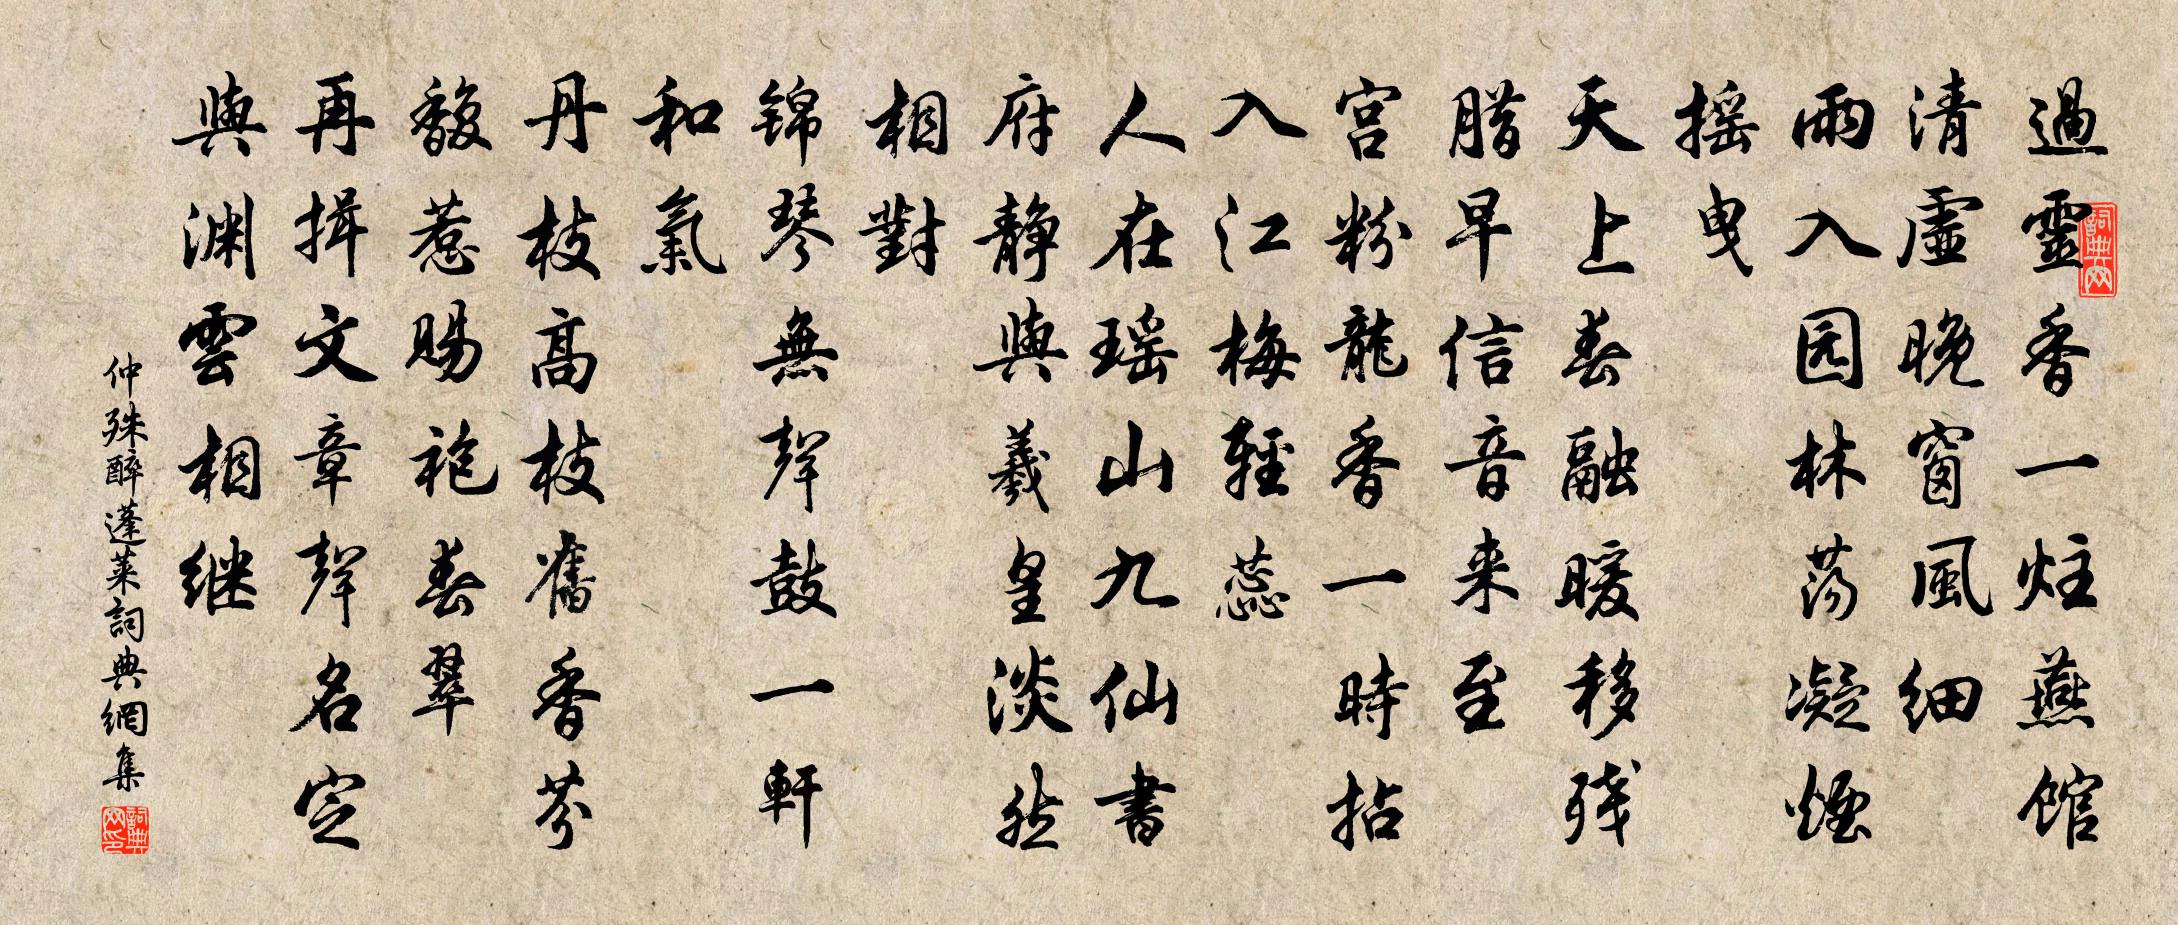 過靈香一炷燕館
清虛晚窗風细
雨入园林荡凝煙
摇曳
天上春融暖移残
腊早信音来至
宫粉龍香一時拈
入江梅輕蕊
人在瑶山九仙書
府靜與羲皇淡然
相對
锦琴無聲鼓一軒
和氣
丹枝高枝舊香芬
馥惹賜袍春翠
再揖文章聲名定
與渊雲相继
仲殊醉蓬莱詞典網集
詞典网
詞典网印